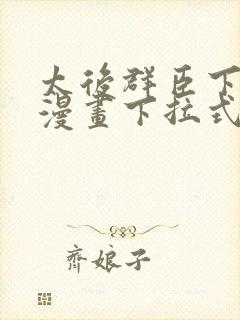 太後群臣下
漫畫下拉式
齊娘子